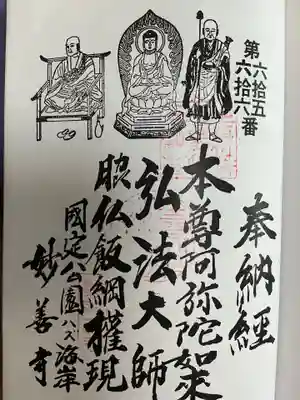 第六拾五
六拾六番
奉納經
本尊阿弥陀如来
弘法大師
脇仏飯綱權現
國定公園八ス海岸
妙善寺